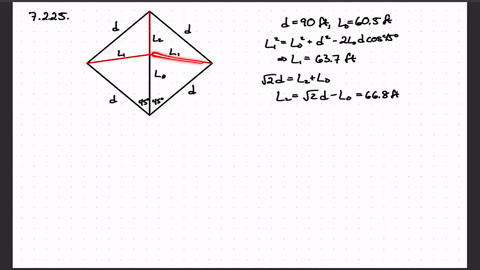 7.225.
d
d
L₂
L₁
L₁
L₀
d
d
45° 45°
d = 90 ft, L₀ = 60.5 ft
L₁² = L₀² + d² - 2L₀d cos45°
⇒ L₁ = 63.7 ft
√2d = L₂ + L₀
L₂ = √2d - L₀ = 66.8 ft